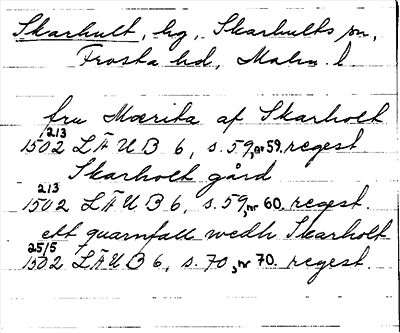 Skarhult, hg, Skarhults sn,
Frosta hd, Malm. l.
fru Mærita af Skarholt
21/3 1502 LÄUB 6, s. 59, nr 59. regest
Skarholt gård
21/3 1502 LÄUB 6, s. 59, nr 60. regest.
ett quarnfall wedh Skarholt
25/5 1502 LÄUB 6, s. 70, nr 70. regest.